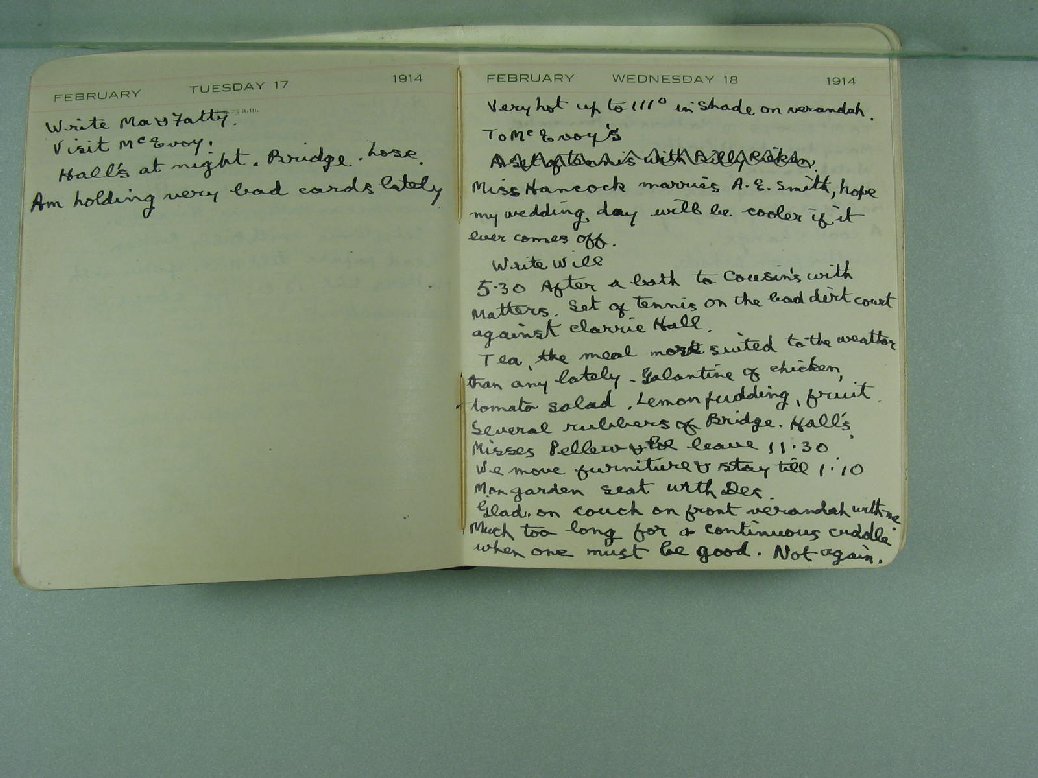 FEBRUARY TUESDAY 17 1914
Write Ma & Fatty.
Visit McEvoy.
Hall's at night. Bridge. Lose.
Am holding very bad cards lately
FEBRUARY WEDNESDAY 18 1914
Very hot up to 111° in shade on verandah.
To McEvoy's
A set of tennis with Billy
Miss Hancock marries A. E. Smith, hope
my wedding day will be cooler if it
ever comes off.
Write Will
5.30 After a bath to Cousin's with
Matters. Set of tennis on the bad dirt court
against Clarrie Hall.
Tea, the meal most suited to the weather
than any lately - Galantine of chicken,
tomato salad, Lemon pudding, fruit.
Several rubbers of Bridge. Hall's
Misses Pellew & leave 11.30
We move furniture & stay till 1.10
M on garden seat with Des.
Glad. on couch on front verandah with me
Much too long for a continuous cuddle
when one must be good. Not again.